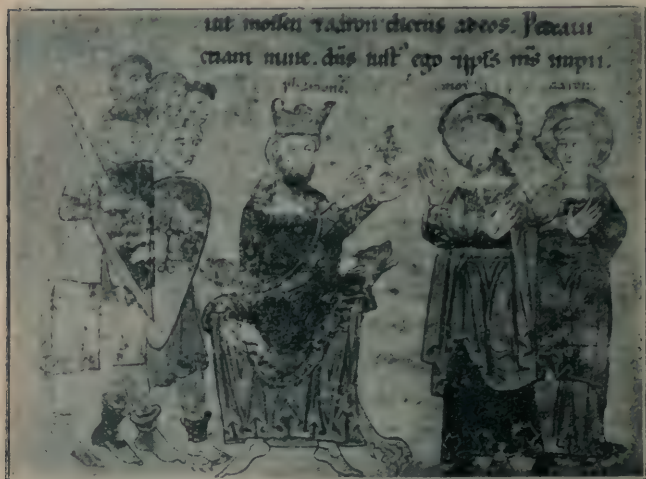 uit moysen ⁊ aaron dicens ad eos. Peccaui
etiam nunc. dn̄s iust' ego ⁊ ppl̄s m̄s impii.
aaron.